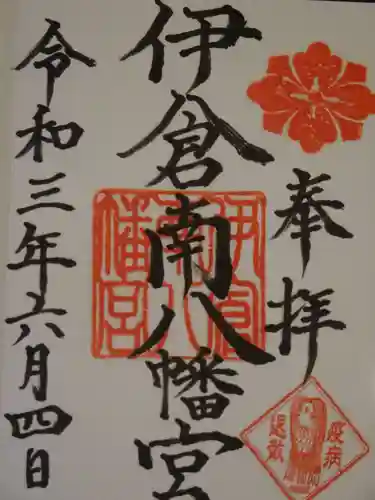 奉拝
伊倉南八幡宮
令和三年六月四日
伊倉
南八
幡宮
疫病
退散